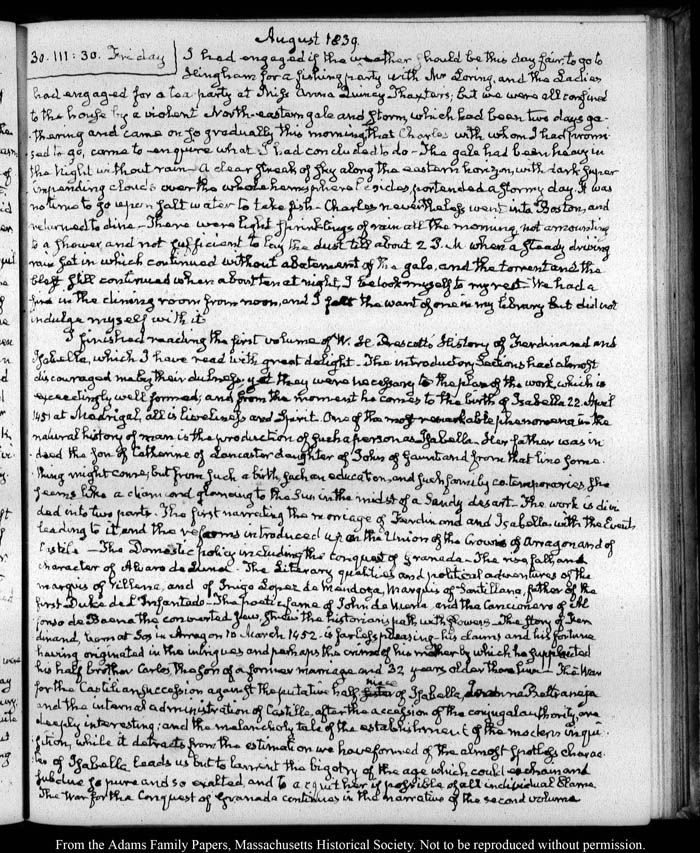 August 1839.
30. III: 30. Friday
I had engaged if the weather should be this day fair, to go to
Hingham for a fishing party with Mr Loring, and the Ladies
had engaged for a tea-party at Miss Anna Quincy Thaxter's; but we were all confined
to the house by a violent North-eastern gale and storm, which had been two days ga-
thering and came on so gradually this morning that Charles with whom I had promi-
sed to go, came to enquire what I had concluded to do - The gale had been heavy in
the night without rain - A clear streak of sky along the eastern horizon, with dark super
impending clouds over the whole hemisphere besides, portended a stormy day. It was
no time to go upon salt water to take fish - Charles nevertheless went into Boston, and
returned to dine - There were light sprinklings of rain all the morning, not amounting
to a shower, and not sufficient to lay the dust till about 2 P.M. when a steady driving
rain set in which continued without abatement of the gale, and the torrent and the
blast still continued when about ten at night, I betook myself to my rest - We had a
fire in the dining room from noon, and I felt the want of one in my library but did not
indulge myself with it
I finished reading the first volume of W. H. Prescott's History of Ferdinand and
Isabella, which I have read with great delight - The introductory Sections had almost
discouraged me by their dulness, yet they were necessary to the plan of the work, which is
exceedingly well formed; and from the moment he comes to the birth of Isabella 22. April
1451 at Madrigal, all is liveliness and Spirit. One of the most remarkable phenomena in the
natural history of man is the production of such a person as Isabella. Her father was in
deed the son of Catherine of Lancaster daughter of John of Gaunt and from that line some-
thing might come; but from such a birth, such an education, and such family cotemporaries, she
seems like a diamond glowing to the Sun in the midst of a Sandy desart - The work is divi
ded into two parts. The first narrating the marriage of Ferdinand and Isabella, with the Events
leading to it, and the reforms introduced upon the Union of the Crowns of Arragon and of
Castile - The Domestic policy including the conquest of Granada - The rise fall, and
character of Alvaro de Luna - The Literary qualities and political adventures of the
marquis of Villena, and of Inigo Lopez de Mendoza, Marquis of Santillana, father of the
first Duke del Infantado - The poetic fame of John de Mena, and the Cancionero of Al
fonso de Baena the converted Jew, strew the historian's path with flowers - The story of Fer
dinand, born at Sos in Arragon 10 March 1452. is far less pleasing - his claims and his fortune
having originated in the intrigues and perhaps the crime of his mother by which he supplanted
his half brother Carlos, the son of a former marriage, and 32 years older than him - The War
for the Castilian succession against the putative half niece of Isabella, Joanna Beltraneja
and the internal administration of Castille, after the accession of the conjugal authority, are
deeply interesting; and the melancholy tale of the establishment of the modern inqui-
sition, while it detracts from the estimation we have formed of the almost spotless charac-
ter of Isabella leads us but to lament the bigotry of the age which could enchain and
subdue so pure and so exalted, and to acquit her if possible of all individual blame.
The War for the Conquest of Granada continues in the narrative of the second volume
From the Adams Family Papers, Massachusetts Historical Society. Not to be reproduced without permission.